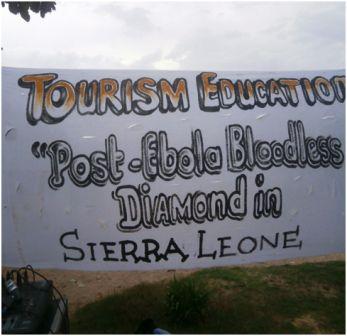 TOURISM EDUCATION
"Post-Ebola Bloodless
DIAMOND in
SIERRA LEONE